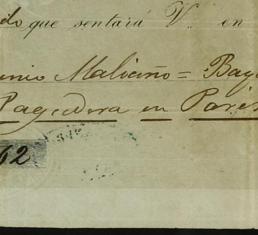 do que sentará V. en
Maliaño = Bay
Pagadera en Paris
62